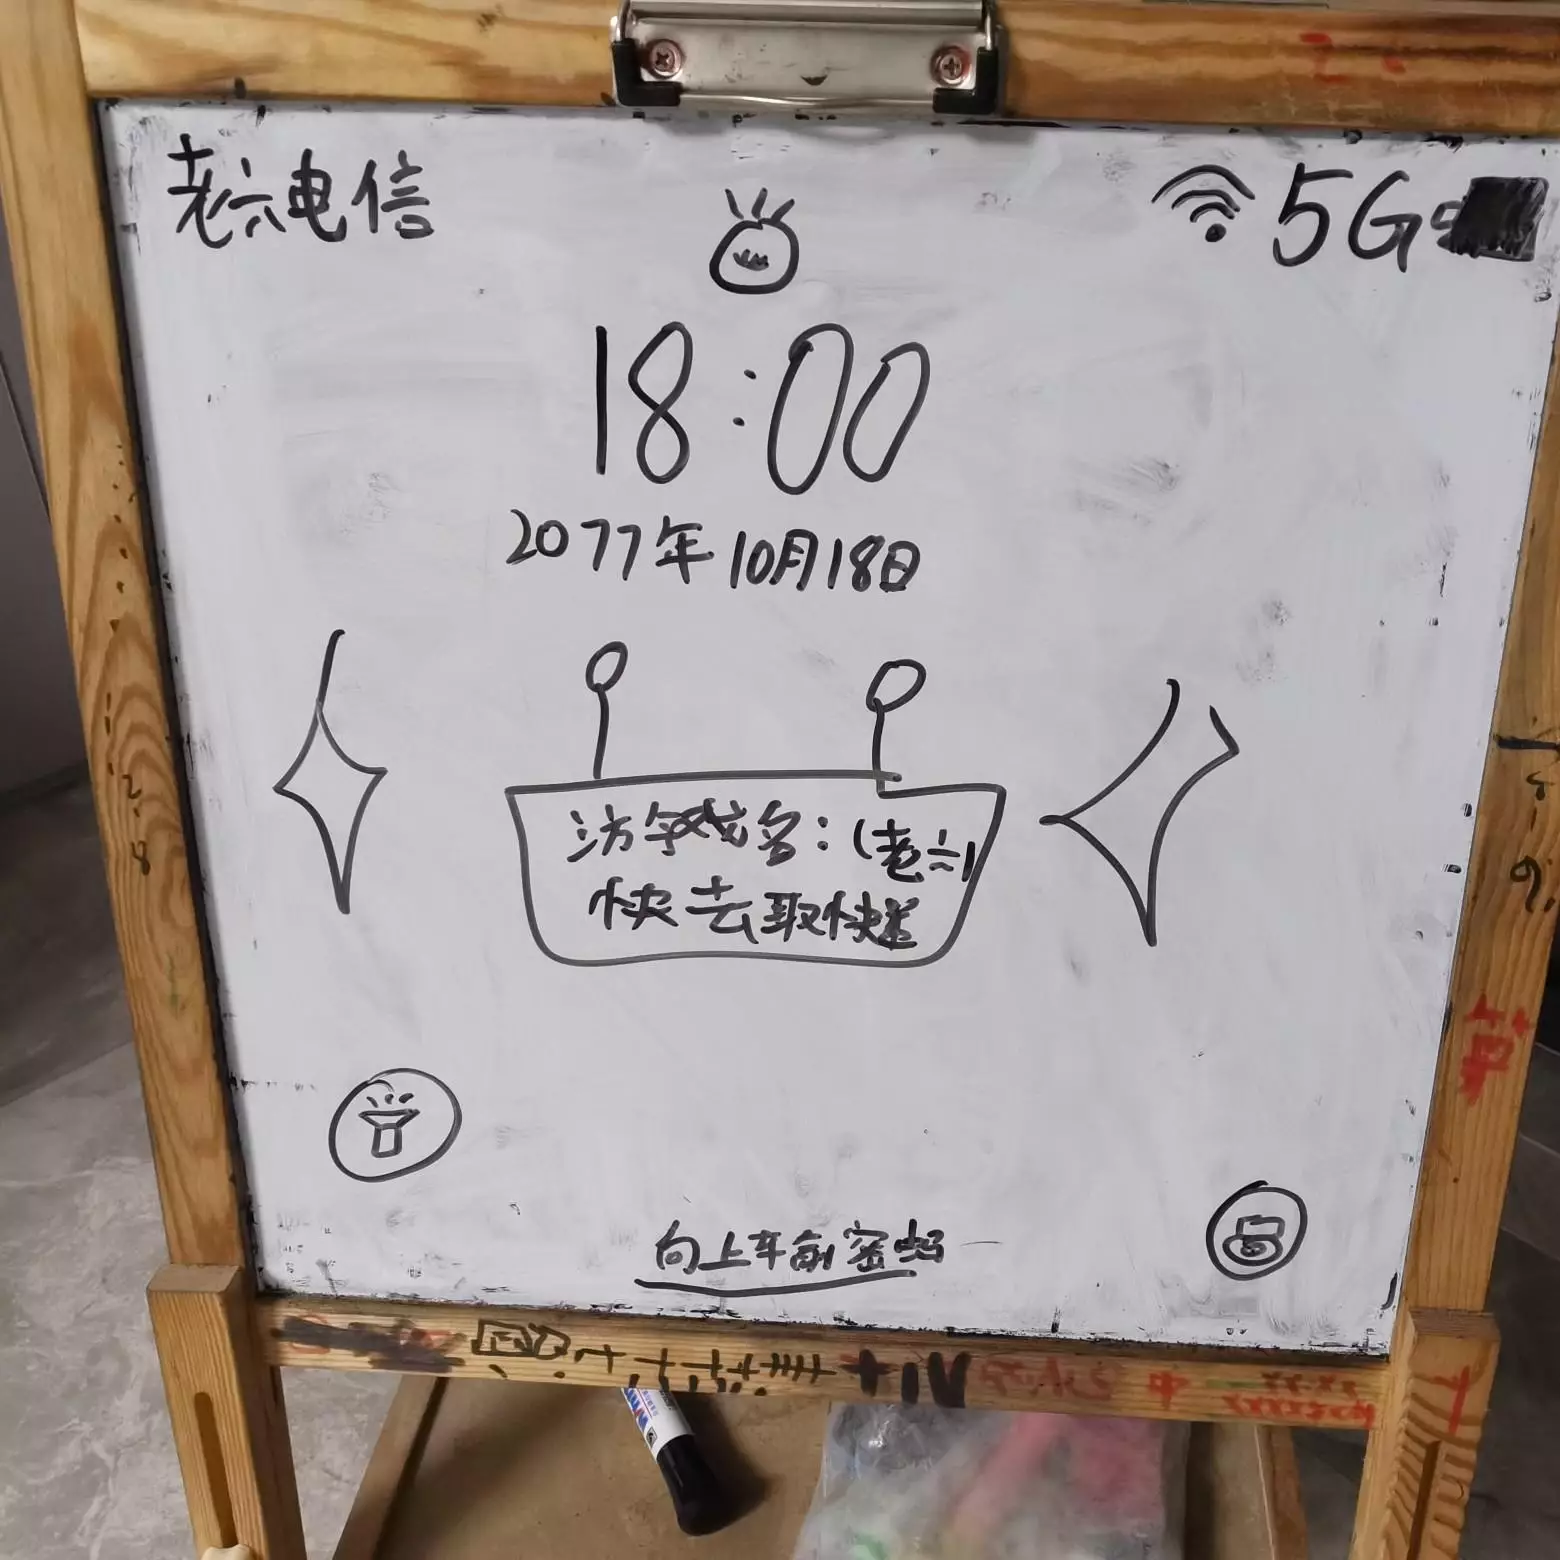 老六电信
5G
18:00
2077年10月18日
：（老六）
快去取快递
向上车前密码